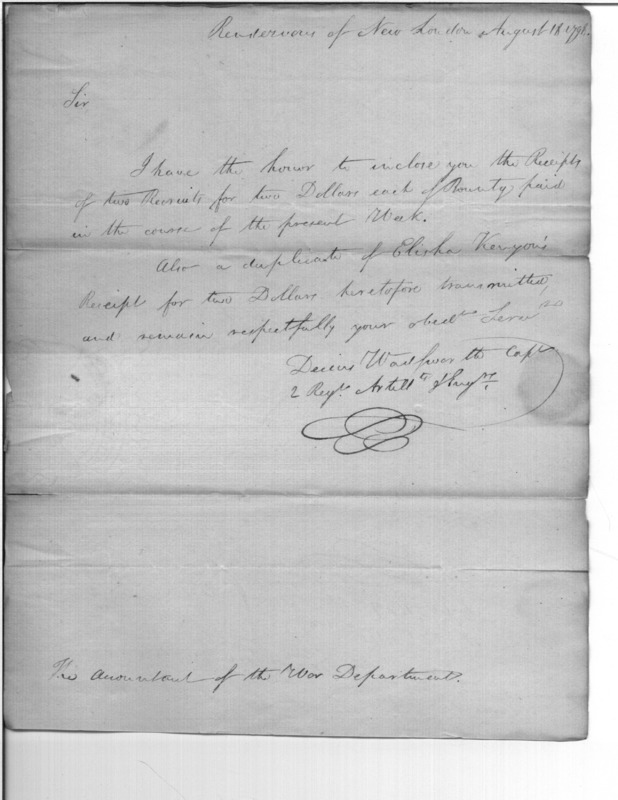 Rendezvous of New London August 18 1798.
Sir
I have the honor to inclose you the Receipts
of two Recruits for two Dollars each of Bounty paid
in the course of the present Week.
Also a duplicate of Elisha Kenyon's
Receipt for two Dollars heretofore transmitted,
and remain respectfully your obedt Servt
Decius Wadsworth Capt
2 Regt. Artillts & Engrs.
The Accountant of the War Department.